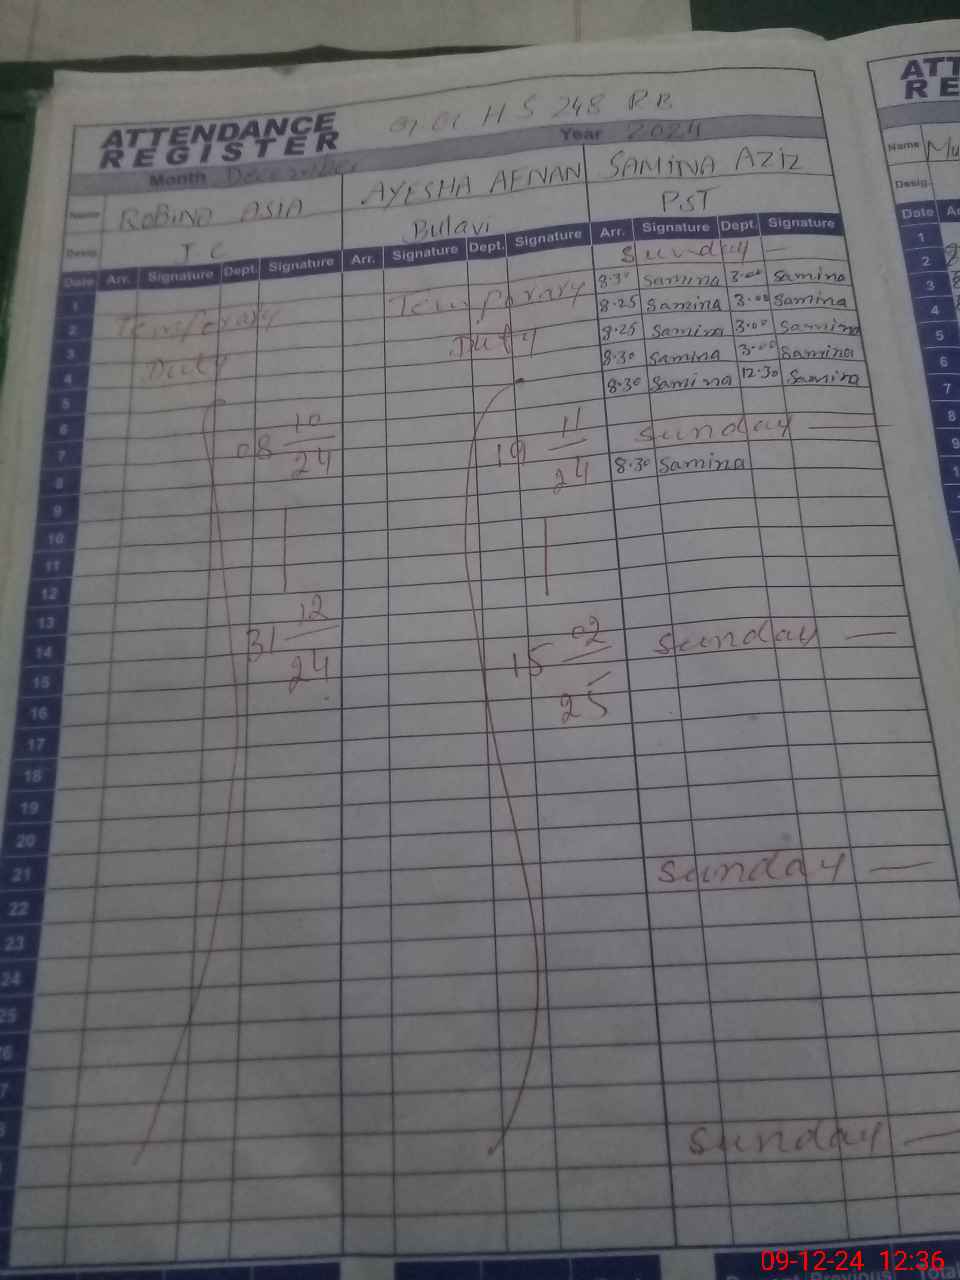 ATTENDANCE REGISTER
H S 248 R.B
Year 2024
Month December
Name ROBINO ASIA AYESHA AFNAN SAMINA AZIZ
Desig. J.C Bulavi P.S.T
Date Arr. Signature Dept. Signature Arr. Signature Dept. Signature Arr. Signature Dept. Signature
1 Sunday —
2 8.30 Samina 3.00 Samina
3 8.25 Samina 3.00 Samina
4 8.25 Samina 3.00 Samina
5 8.30 Samina 3.00 Samina
6 8.30 Samina 12.30 Samina
7
8 Sunday —
9 8.30 Samina
10
11
12
13
14
15 Sunday —
16
17
18
19
20
21
22 Sunday —
23
24
25
Sunday —
Temporary
Duty
08 10
24
31 12
24
Temporary
Duty
19 11
24
15 02
25
ATT
RE
Name Mu
Desig.
Date A
1
2
3
4
5
6
7
8
9
1
09-12-24 12:36